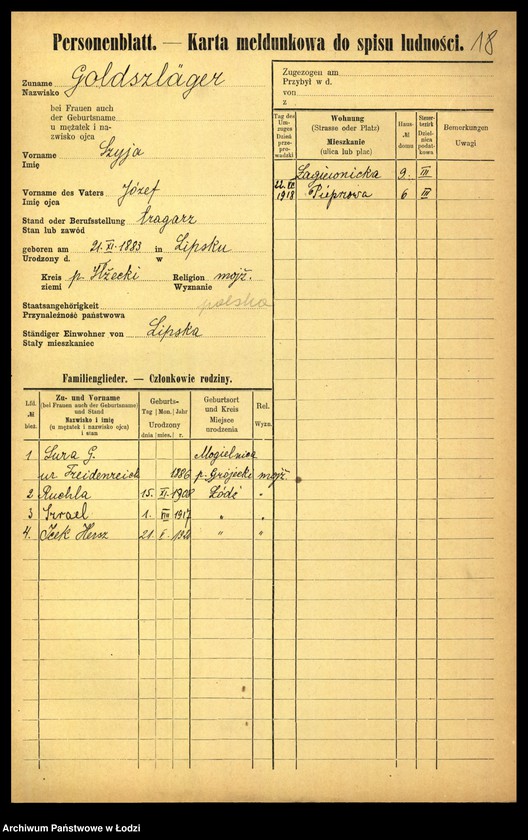 Personenblatt. — Karta meldunkowa do spisu ludności. 18
Zuname
Nazwisko Goldszläger
bei Frauen auch
der Geburtsname
u mężatek i na-
zwisko ojca
Vorname Szyja
Imię
Vorname des Vaters Józef
Imię ojca
Stand oder Berufsstellung tragarz
Stan lub zawód
geboren am 21. XI. 1883 in Lipsku
Urodzony d. w
Kreis p. Iłżecki Religion mojż.
ziemi Wyznanie
Staatsangehörigkeit polska
Przynależność państwowa
Ständiger Einwohner von Lipska
Stały mieszkaniec
Zugezogen am
Przybył w d.
von
z
Tag des Um-zuges Dzień prze-prowadzki
Wohnung
(Strasse oder Platz)
Mieszkanie
(ulica lub plac)
Haus-
№
domu
Steuer-
bezirk
Dziel-
nica
podat-
kowa
Bemerkungen
Uwagi
Łagiewnicka 9. III.
1918 Pieprzowa 6 III
Familienglieder. — Członkowie rodziny.
Lfd.
№
bież.
Zu- und Vorname
(bei Frauen auch der Geburtsname)
und Stand
Nazwisko i imię
(u mężatek i nazwisko ojca)
i stan
Geburts-
Tag Mon. Jahr
Urodzony
dnia mies. r.
Geburtsort
und Kreis
Miejsce
urodzenia
Rel.
Wyzn.
1 Sura G. Mogielnica
ur. Freidenreich 1886 p. Grójecki mojż.
2 Ruchla 15. XI. 1908 Łódź "
3 Izrael 1. VIII 1917 " "
4. Icek Hersz 21. V. 1920 " "
Archiwum Państwowe w Łodzi